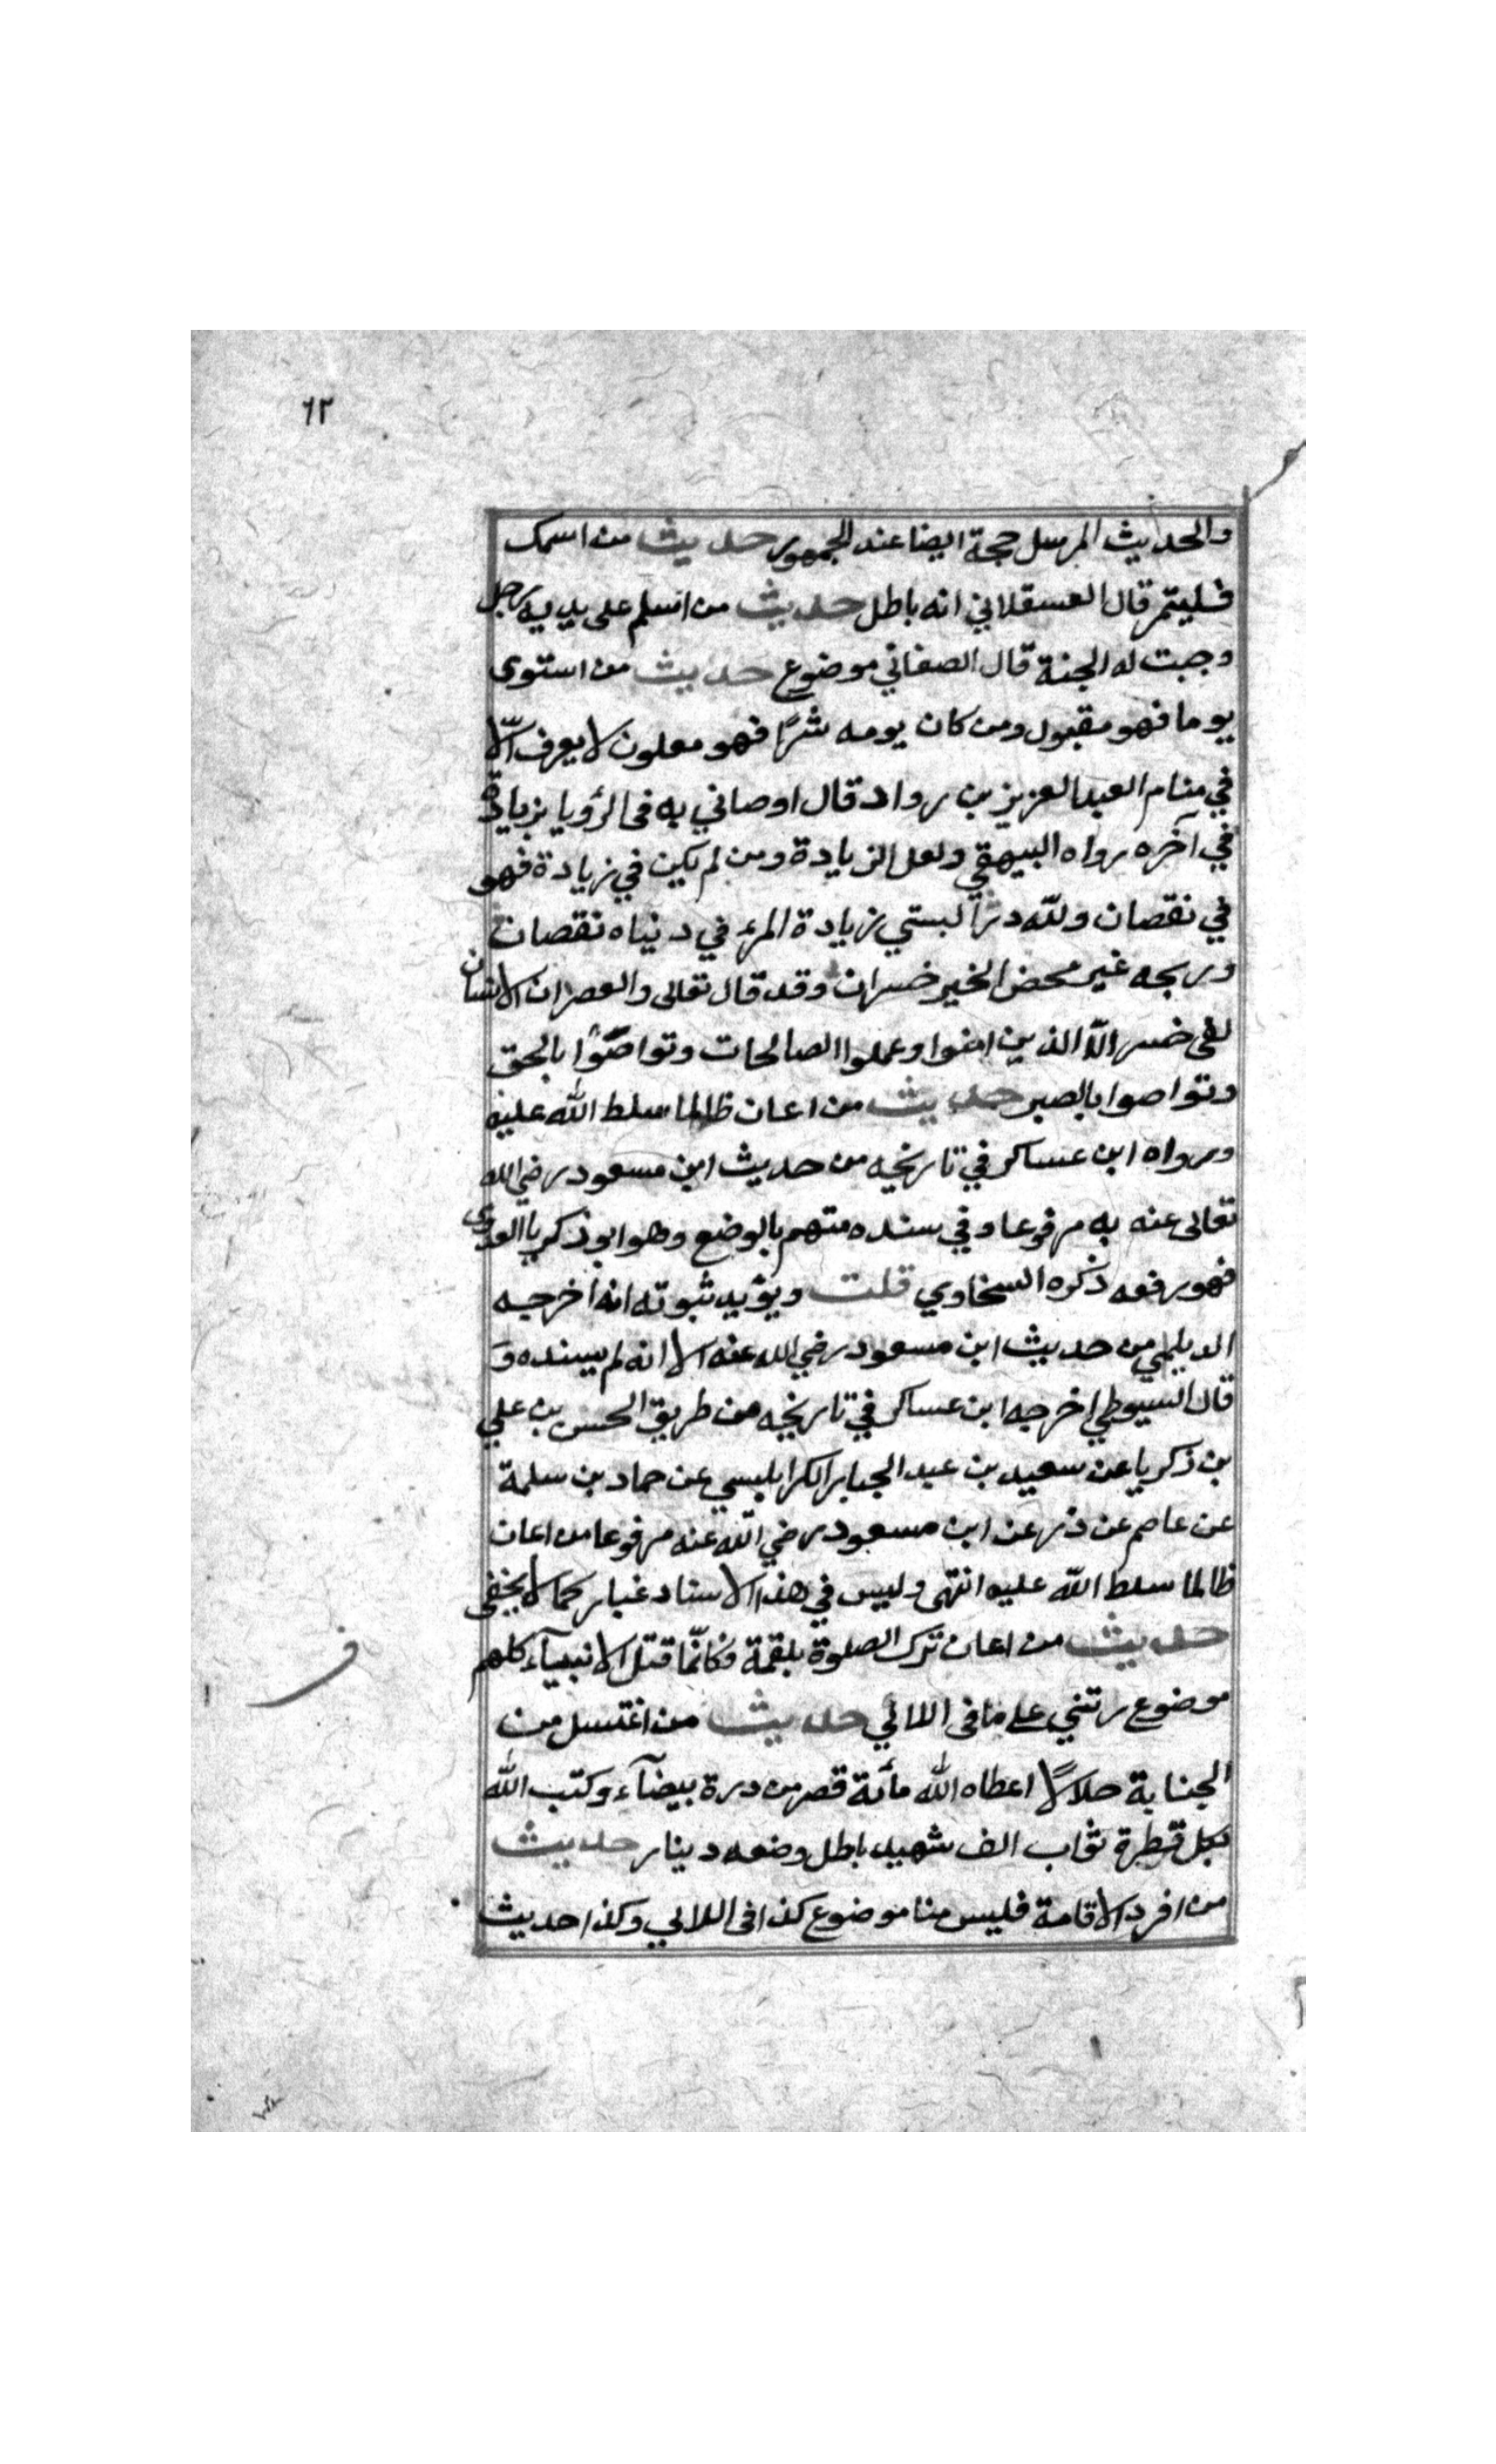 ٦٢
والحديث المرسل حجة ايضا عند الجمهور حديث من اسمك
فليتمر قال العسقلاني انه باطل حديث من اسلم على يديه رجل
وجبت له الجنة قال الصغاني موضوع حديث من استوى
يوما فهو مقبول ومن كان يومه شرًا فهو معلون لا يعرف الّا
في منام العبد العزيز بن رواد قال اوصاني به في الرؤيا بزيادة
في آخره رواه البيهقي ولعل الزيادة ومن لم يكن في زيادة فهو
في نقصان ولله درّ البستي زيادة المرء في دنياه نقصان
وربحه غير محض الخير خسران وقد قال تعالى والعصر ان الانسان
لفى خسر الّا الذين امنوا وعملوا الصالحات وتواصَوْا بالحق
وتواصوا بالصبر حديث من اعان ظالما سلط الله عليه
ورواه ابن عساكر في تاريخه من حديث ابن مسعود رضي الله
تعالى عنه به مرفوعا وفي سنده متهم بالوضع وهو ابو زكريا العدوى
فهو رفعه ذكره السخاوي قلت ويؤيد ثبوته انه اخرجه
الديلمي من حديث ابن مسعود رضي الله عنه الا انه لم يسنده وَ
قال السيوطي اخرجه ابن عساكر في تاريخه من طريق الحسن بن علي
بن زكريا عن سعيد بن عبد الجبابر الكرابلبسي عن حماد بن سلمة
عن عاصم عن ذر عن ابن مسعود رضي الله عنه مرفوعا من اعان
ظالما سلط الله عليه انتهى وليس في هذا الاسناد غبار كما لا يخفى
حديث من اعان ترك الصلوة بلقمة فكانّما قتل الانبيآء كلهم
موضوع رتني على ما في اللالي حديث من اغتسل من
الجنابة حلالاً اعطاه الله مأئة قصر من درة بيضآء وكتب الله
بكل قطرة ثواب الف شهيد باطل وضعه دينار حديث
من افرد الاقامة فليس منا موضوع كذا في اللالي وكذا حديث